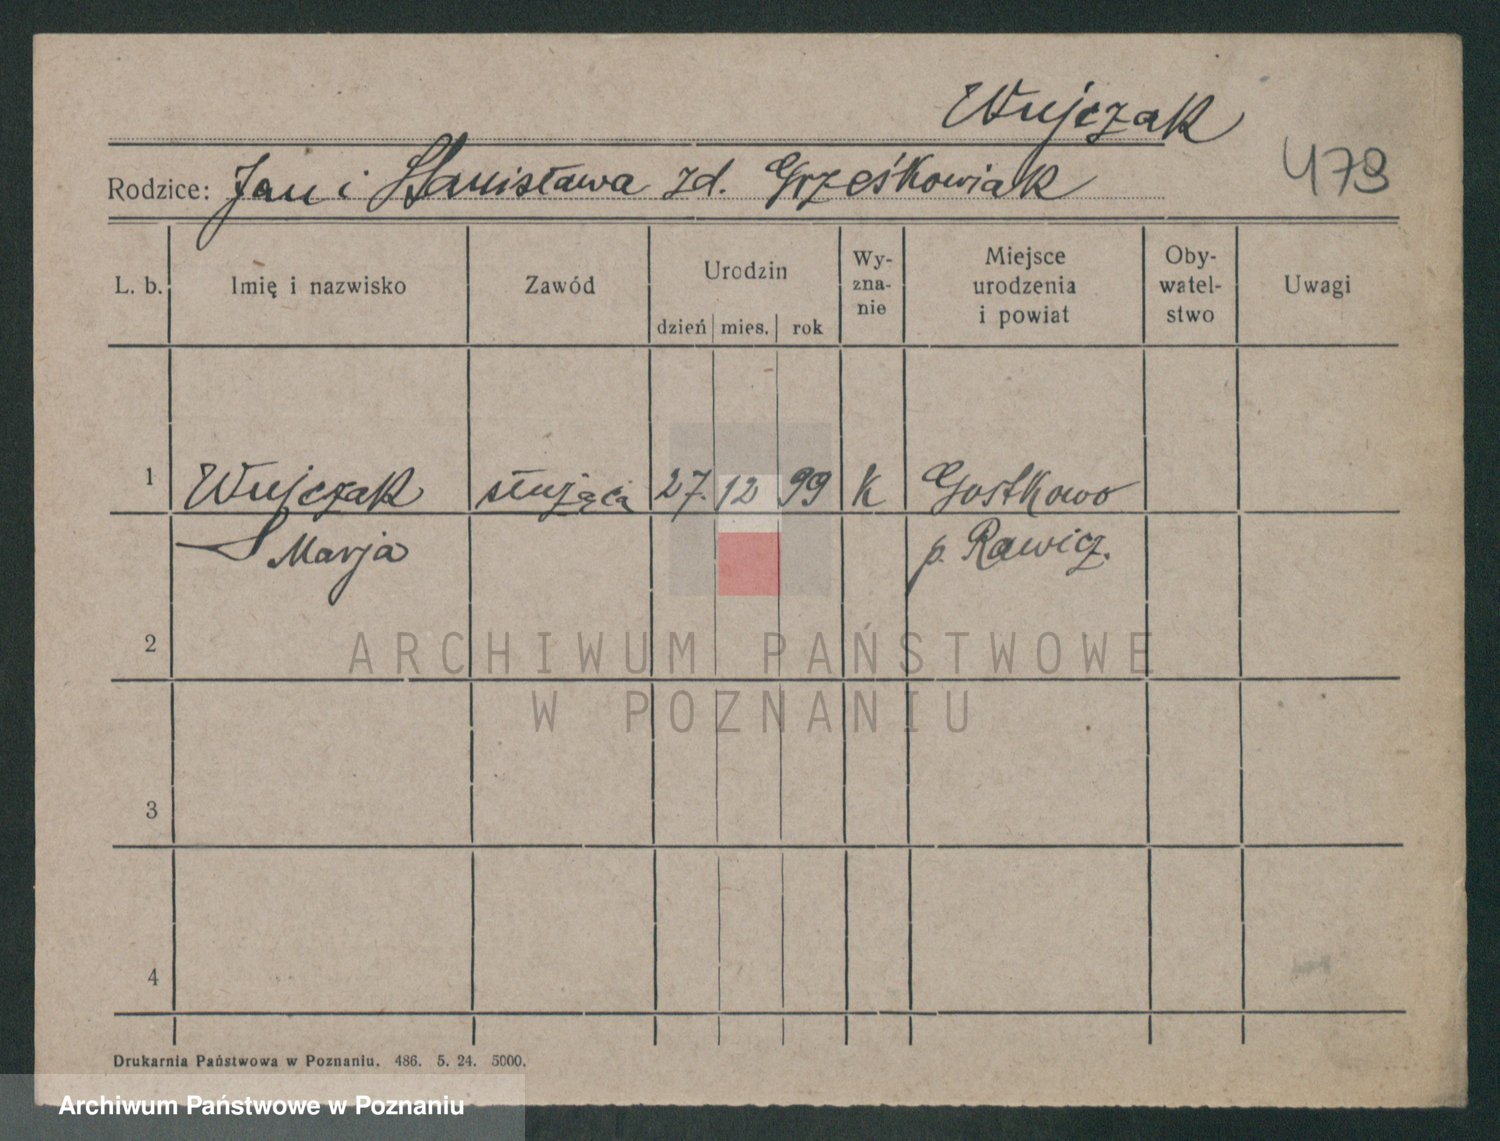 Wujczak
Rodzice: Jan i Stanisława zd. Grześkowiak
479
L. b.
Imię i nazwisko
Zawód
Urodzin
dzień mies. rok
Wy-
zna-
nie
Miejsce
urodzenia
i powiat
Oby-
watel-
stwo
Uwagi
1 Wujczak służąca 27. 12 99 k Gostkowo
Marja p. Rawicz.
2
ARCHIWUM PAŃSTWOWE
W POZNANIU
3
4
Drukarnia Państwowa w Poznaniu. 486. 5. 24. 5000.
Archiwum Państwowe w Poznaniu